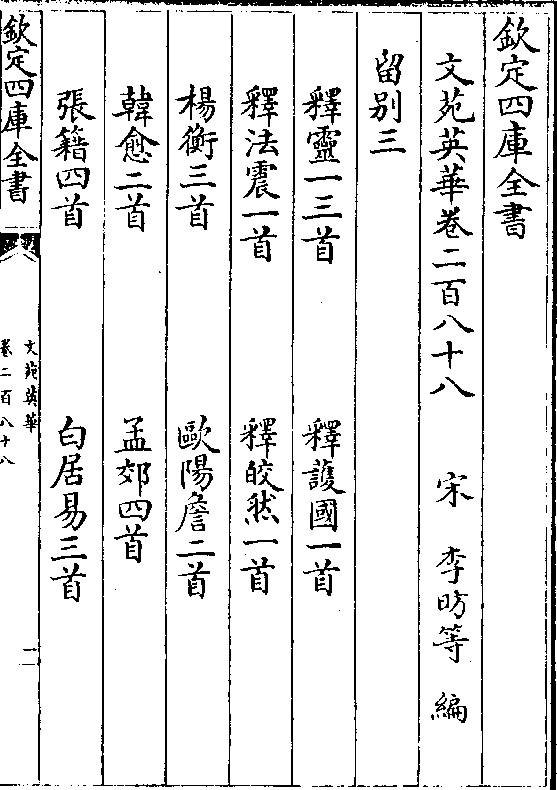 欽定四庫全書
文苑英華卷二百八十八　宋　李昉等　編
留别三
釋靈一三首　釋護國一首
釋法震一首　釋皎然一首
楊衡三首　歐陽詹二首
韓愈二首　孟郊四首
張籍四首　白居易三首
欽定四庫全書
文苑英華
卷二百八十八
一